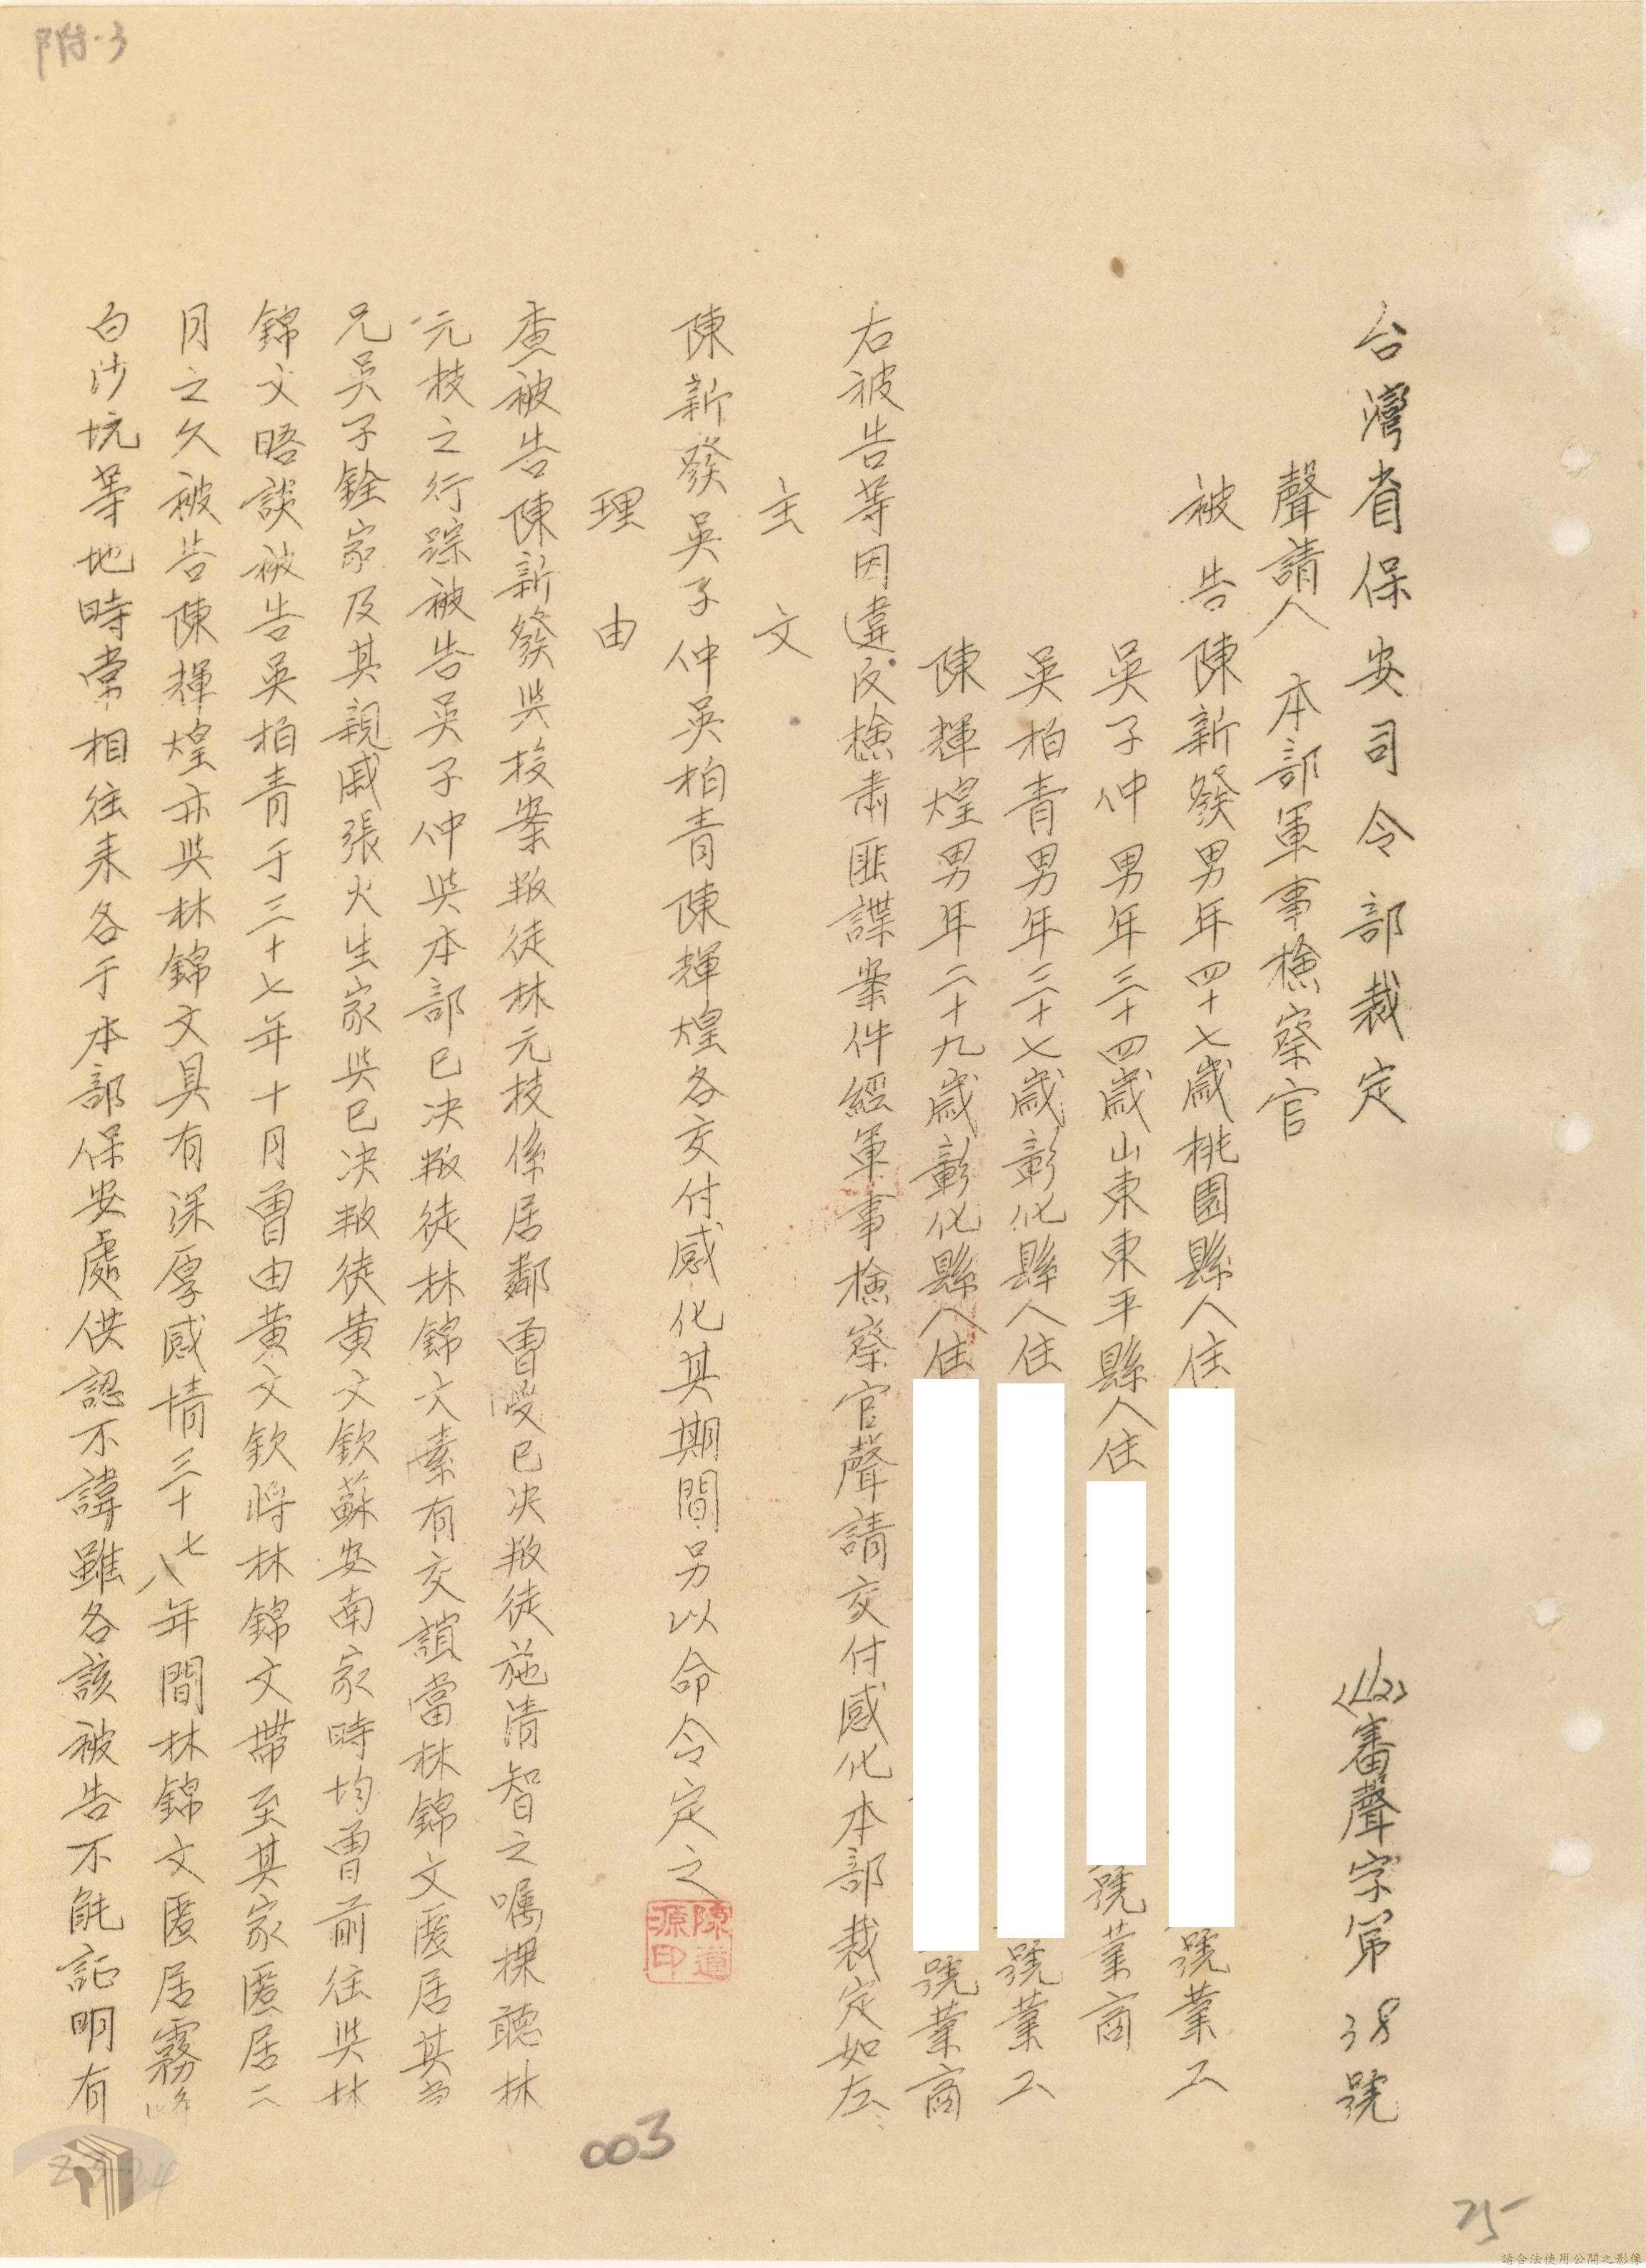 附-3
台灣省保安司令部裁定
審聲字第38號
聲請人 本部軍事檢察官
被告陳新發男年四十七歲桃園縣人住
號業工
吳子仲男年三十四歲山東東平縣人住
號業商
吳柏青男年三十七歲彰化縣人住
號業工
陳輝煌男年二十九歲彰化縣人住
號業商
右被告等因違反檢肅匪諜案件經軍事檢察官聲請交付感化本部裁定如左
主文
陳新發吳子仲吳柏青陳輝煌各交付感化其期間另以命令定之
陳道源印
理由
查被告陳新發與投案叛徒林元枝係居鄰曾受已決叛徒施清智之囑探聽林
元枝之行踪被告吳子仲與本部已決叛徒林錦文素有交誼當林錦文匿居其
兄吳子銓家及其親戚張火生家與已決叛徒黃文欽蘇安南家時均曾前往與林
錦文晤談被告吳柏青于三十七年十月曾由黃文欽將林錦文帶至其家匿居二
月之久被告陳輝煌亦與林錦文具有深厚感情三十七八年間林錦文匿居霧峰
白沙坑等地時常相往來各于本部保安處供認不諱雖各該被告不能証明有
003
25
請合法使用公開之影像